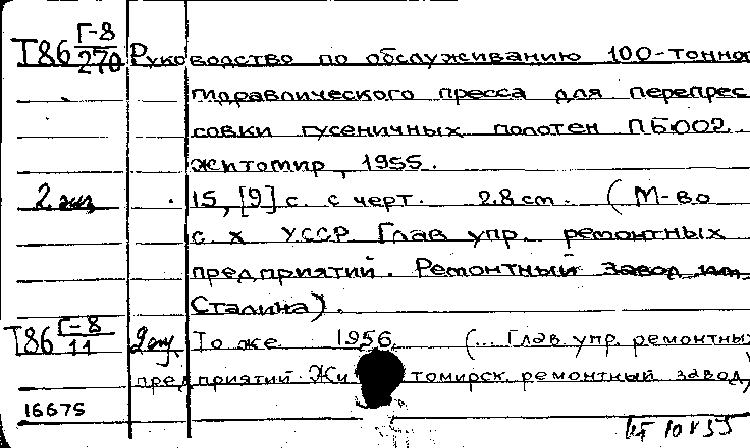 Т86 Г-8/270 Руководство по обслуживанию 100-тонно
гидравлического пресса для перепрес
совки гусеничных полотен ПБ002.
Житомир, 1955.
2 экз. 15, [9] с. с черт. 28 см. (М-во
с. х УССР Глав упр. ремонтных
предприятий. Ремонтный завод им.
Сталина).
Т86 Г-8/11 То же 1956 (... Глав упр. ремонтны
предприятий Житомирск. ремонтный завод)
16675